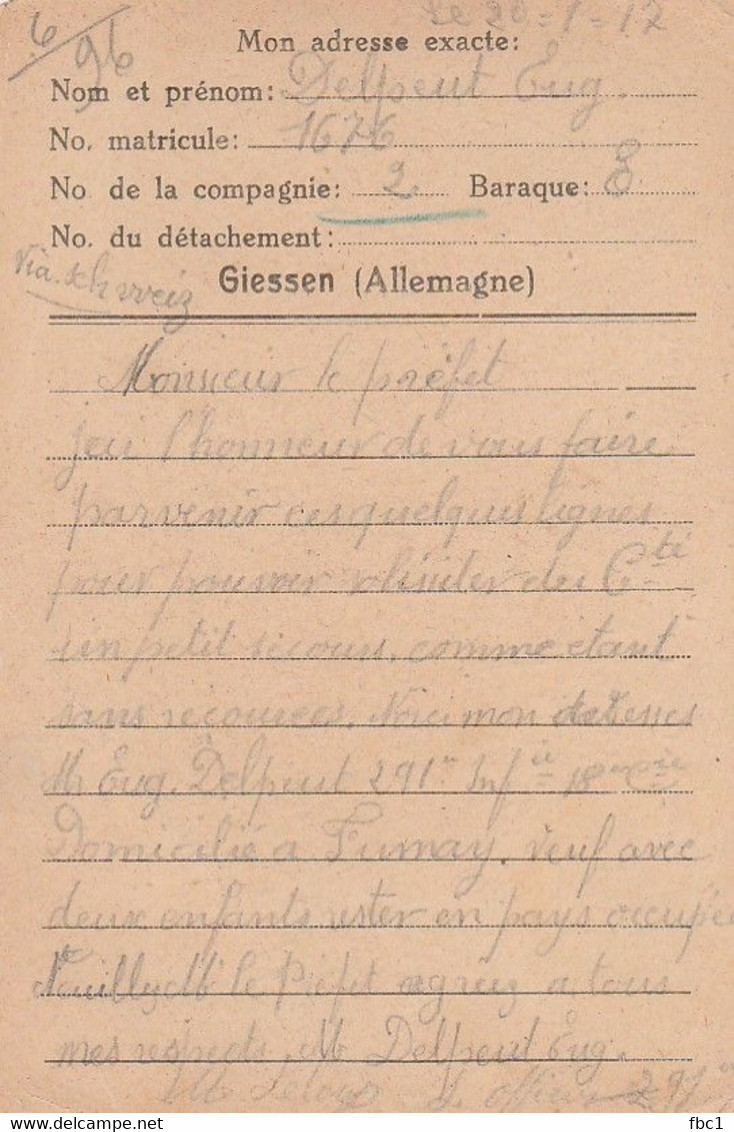 Le 20-1-17
6/96
Mon adresse exacte:
Nom et prénom: Delpeut Eug.
No. matricule: 1676
No de la compagnie: 2 Baraque: 8
No. du détachement:
Via. schweiz
Giessen (Allemagne)
Monsieur le préfet
jai l'honneur de vous faire
parvenir ces quelques lignes
pour pouvoir du Cté
un petit secours, comme étant
sans recources. Voici mon
Mr Eug. Delpeut 291e Infie 18e Cie
Domicilié a Fumay. veuf avec
deux enfants rester en pays occupée
Veuillez Mr le Préfet agreez a tous
mes respects, Mr Delpeut Eug.
291
fbc1